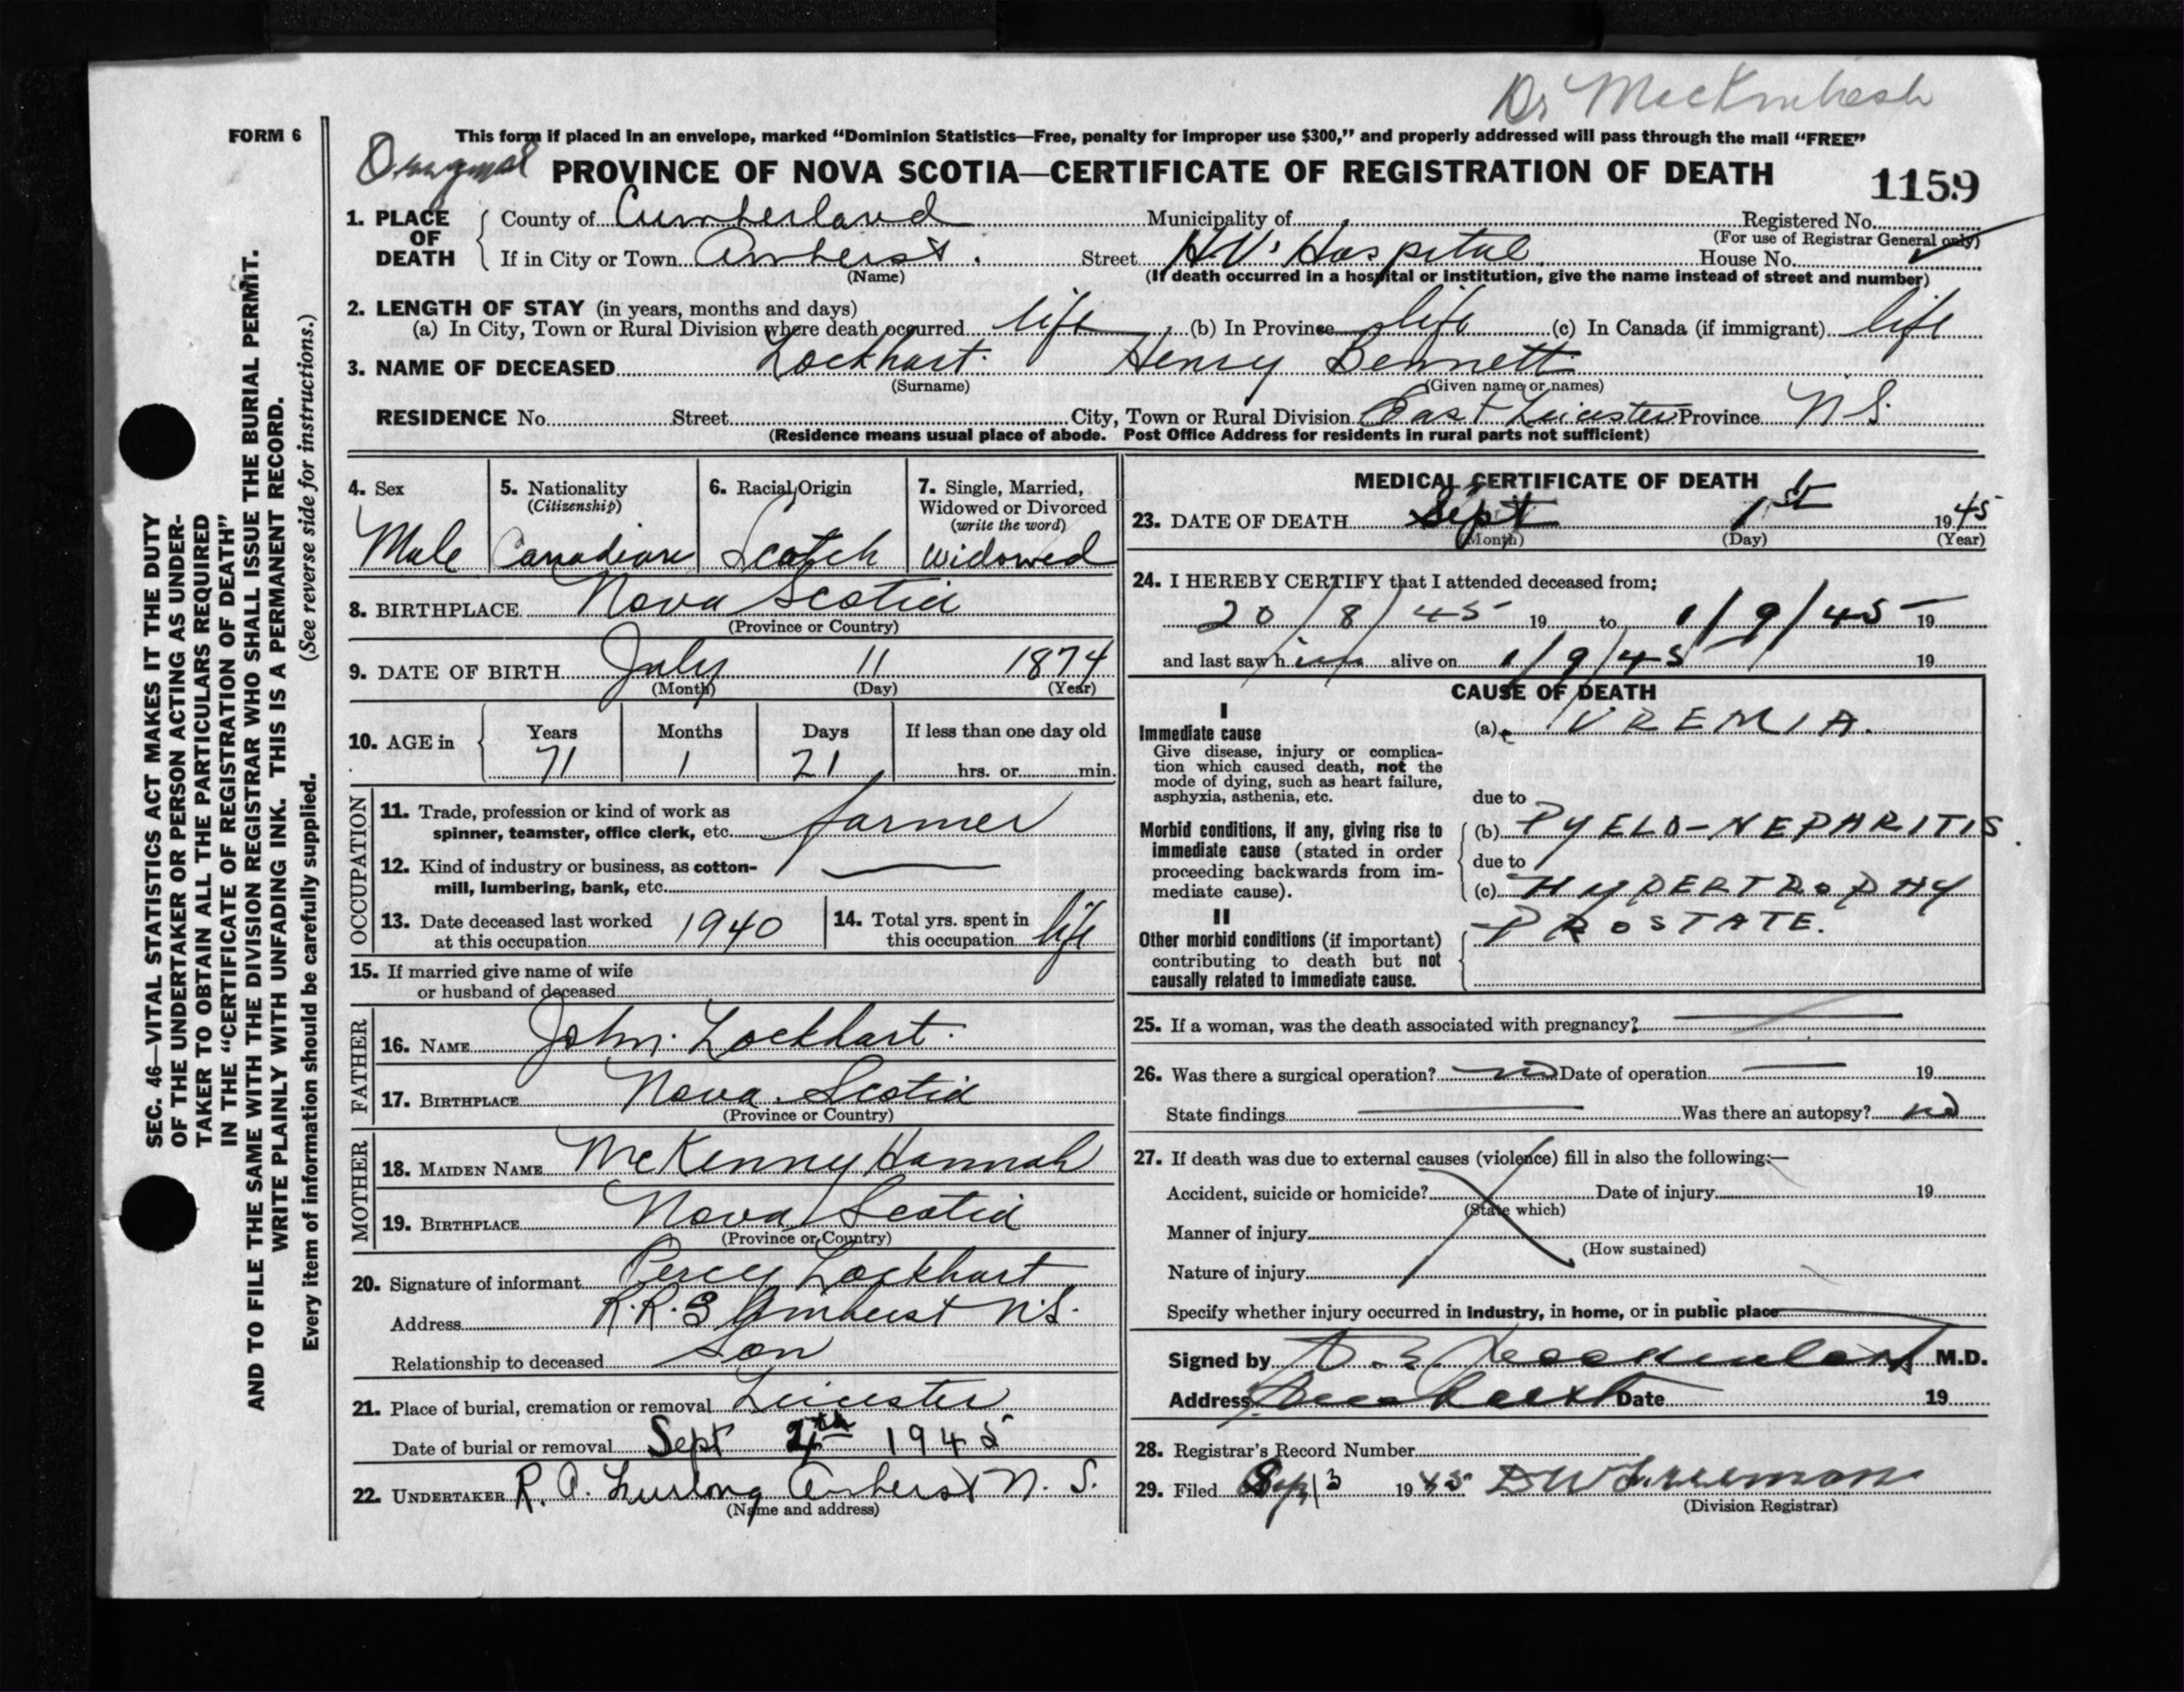 Dr
FORM 6
This form if placed in an envelope, marked “Dominion Statistics—Free, penalty for improper use $300,” and properly addressed will pass through the mail “FREE”
Original PROVINCE OF NOVA SCOTIA—CERTIFICATE OF REGISTRATION OF DEATH 1159
1. PLACE OF DEATH
County of Cumberland Municipality of Registered No.
(For use of Registrar General only)
If in City or Town Amherst. Street H.V. Hospital House No.
(Name) (If death occurred in a hospital or institution, give the name instead of street and number)
2. LENGTH OF STAY (in years, months and days)
(a) In City, Town or Rural Division where death occurred life (b) In Province life (c) In Canada (if immigrant) life
3. NAME OF DECEASED Lockhart. Henry Bennett
(Surname) (Given name or names)
RESIDENCE No. Street City, Town or Rural Division East Leicester Province N S.
(Residence means usual place of abode. Post Office Address for residents in rural parts not sufficient)
4. Sex
Male
5. Nationality
(Citizenship)
Canadian
6. Racial Origin
Scotch
7. Single, Married,
Widowed or Divorced
(write the word)
Widowed
8. BIRTHPLACE Nova Scotia
(Province or Country)
9. DATE OF BIRTH July 11 1874
(Month) (Day) (Year)
10. AGE in
Years Months Days If less than one day old
71 1 21 hrs. or min.
OCCUPATION
11. Trade, profession or kind of work as
spinner, teamster, office clerk, etc. farmer
12. Kind of industry or business, as cotton-
mill, lumbering, bank, etc.
13. Date deceased last worked
at this occupation 1940
14. Total yrs. spent in
this occupation life
15. If married give name of wife
or husband of deceased
FATHER
16. NAME John. Lockhart.
17. BIRTHPLACE Nova. Scotia
(Province or Country)
MOTHER
18. MAIDEN NAME McKenny Hannah
19. BIRTHPLACE Nova Scotia
(Province or Country)
20. Signature of informant Percy Lockhart
Address R.R.3 Amherst N.S.
Relationship to deceased Son
21. Place of burial, cremation or removal Leicester
Date of burial or removal Sept 4th 1945
22. UNDERTAKER R. A. Furlong Amherst N. S.
(Name and address)
MEDICAL CERTIFICATE OF DEATH
23. DATE OF DEATH Sept 1st 1945
(Month) (Day) (Year)
24. I HEREBY CERTIFY that I attended deceased from:
20/8/45 19 to 1/9/45 19
and last saw him alive on 1/9/45 19
CAUSE OF DEATH
I
Immediate cause
Give disease, injury or complica-
tion which caused death, not the
mode of dying, such as heart failure,
asphyxia, asthenia, etc.
(a) UREMIA.
due to
Morbid conditions, if any, giving rise to
immediate cause (stated in order
proceeding backwards from im-
mediate cause).
(b) PYELO-NEPHRITIS.
due to
(c) HYPERTROPHY
PROSTATE.
II
Other morbid conditions (if important)
contributing to death but not
causally related to immediate cause.
25. If a woman, was the death associated with pregnancy?
26. Was there a surgical operation? no Date of operation 19
State findings Was there an autopsy? no
27. If death was due to external causes (violence) fill in also the following:—
Accident, suicide or homicide? Date of injury 19
(State which)
Manner of injury
(How sustained)
Nature of injury
Specify whether injury occurred in industry, in home, or in public place
Signed by M.D.
Address Date 19
28. Registrar's Record Number
29. Filed Sept 3 1945
(Division Registrar)
SEC. 46—VITAL STATISTICS ACT MAKES IT THE DUTY
OF THE UNDERTAKER OR PERSON ACTING AS UNDER-
TAKER TO OBTAIN ALL THE PARTICULARS REQUIRED
IN THE “CERTIFICATE OF REGISTRATION OF DEATH”
AND TO FILE THE SAME WITH THE DIVISION REGISTRAR WHO SHALL ISSUE THE BURIAL PERMIT.
WRITE PLAINLY WITH UNFADING INK. THIS IS A PERMANENT RECORD.
Every item of information should be carefully supplied. (See reverse side for instructions.)